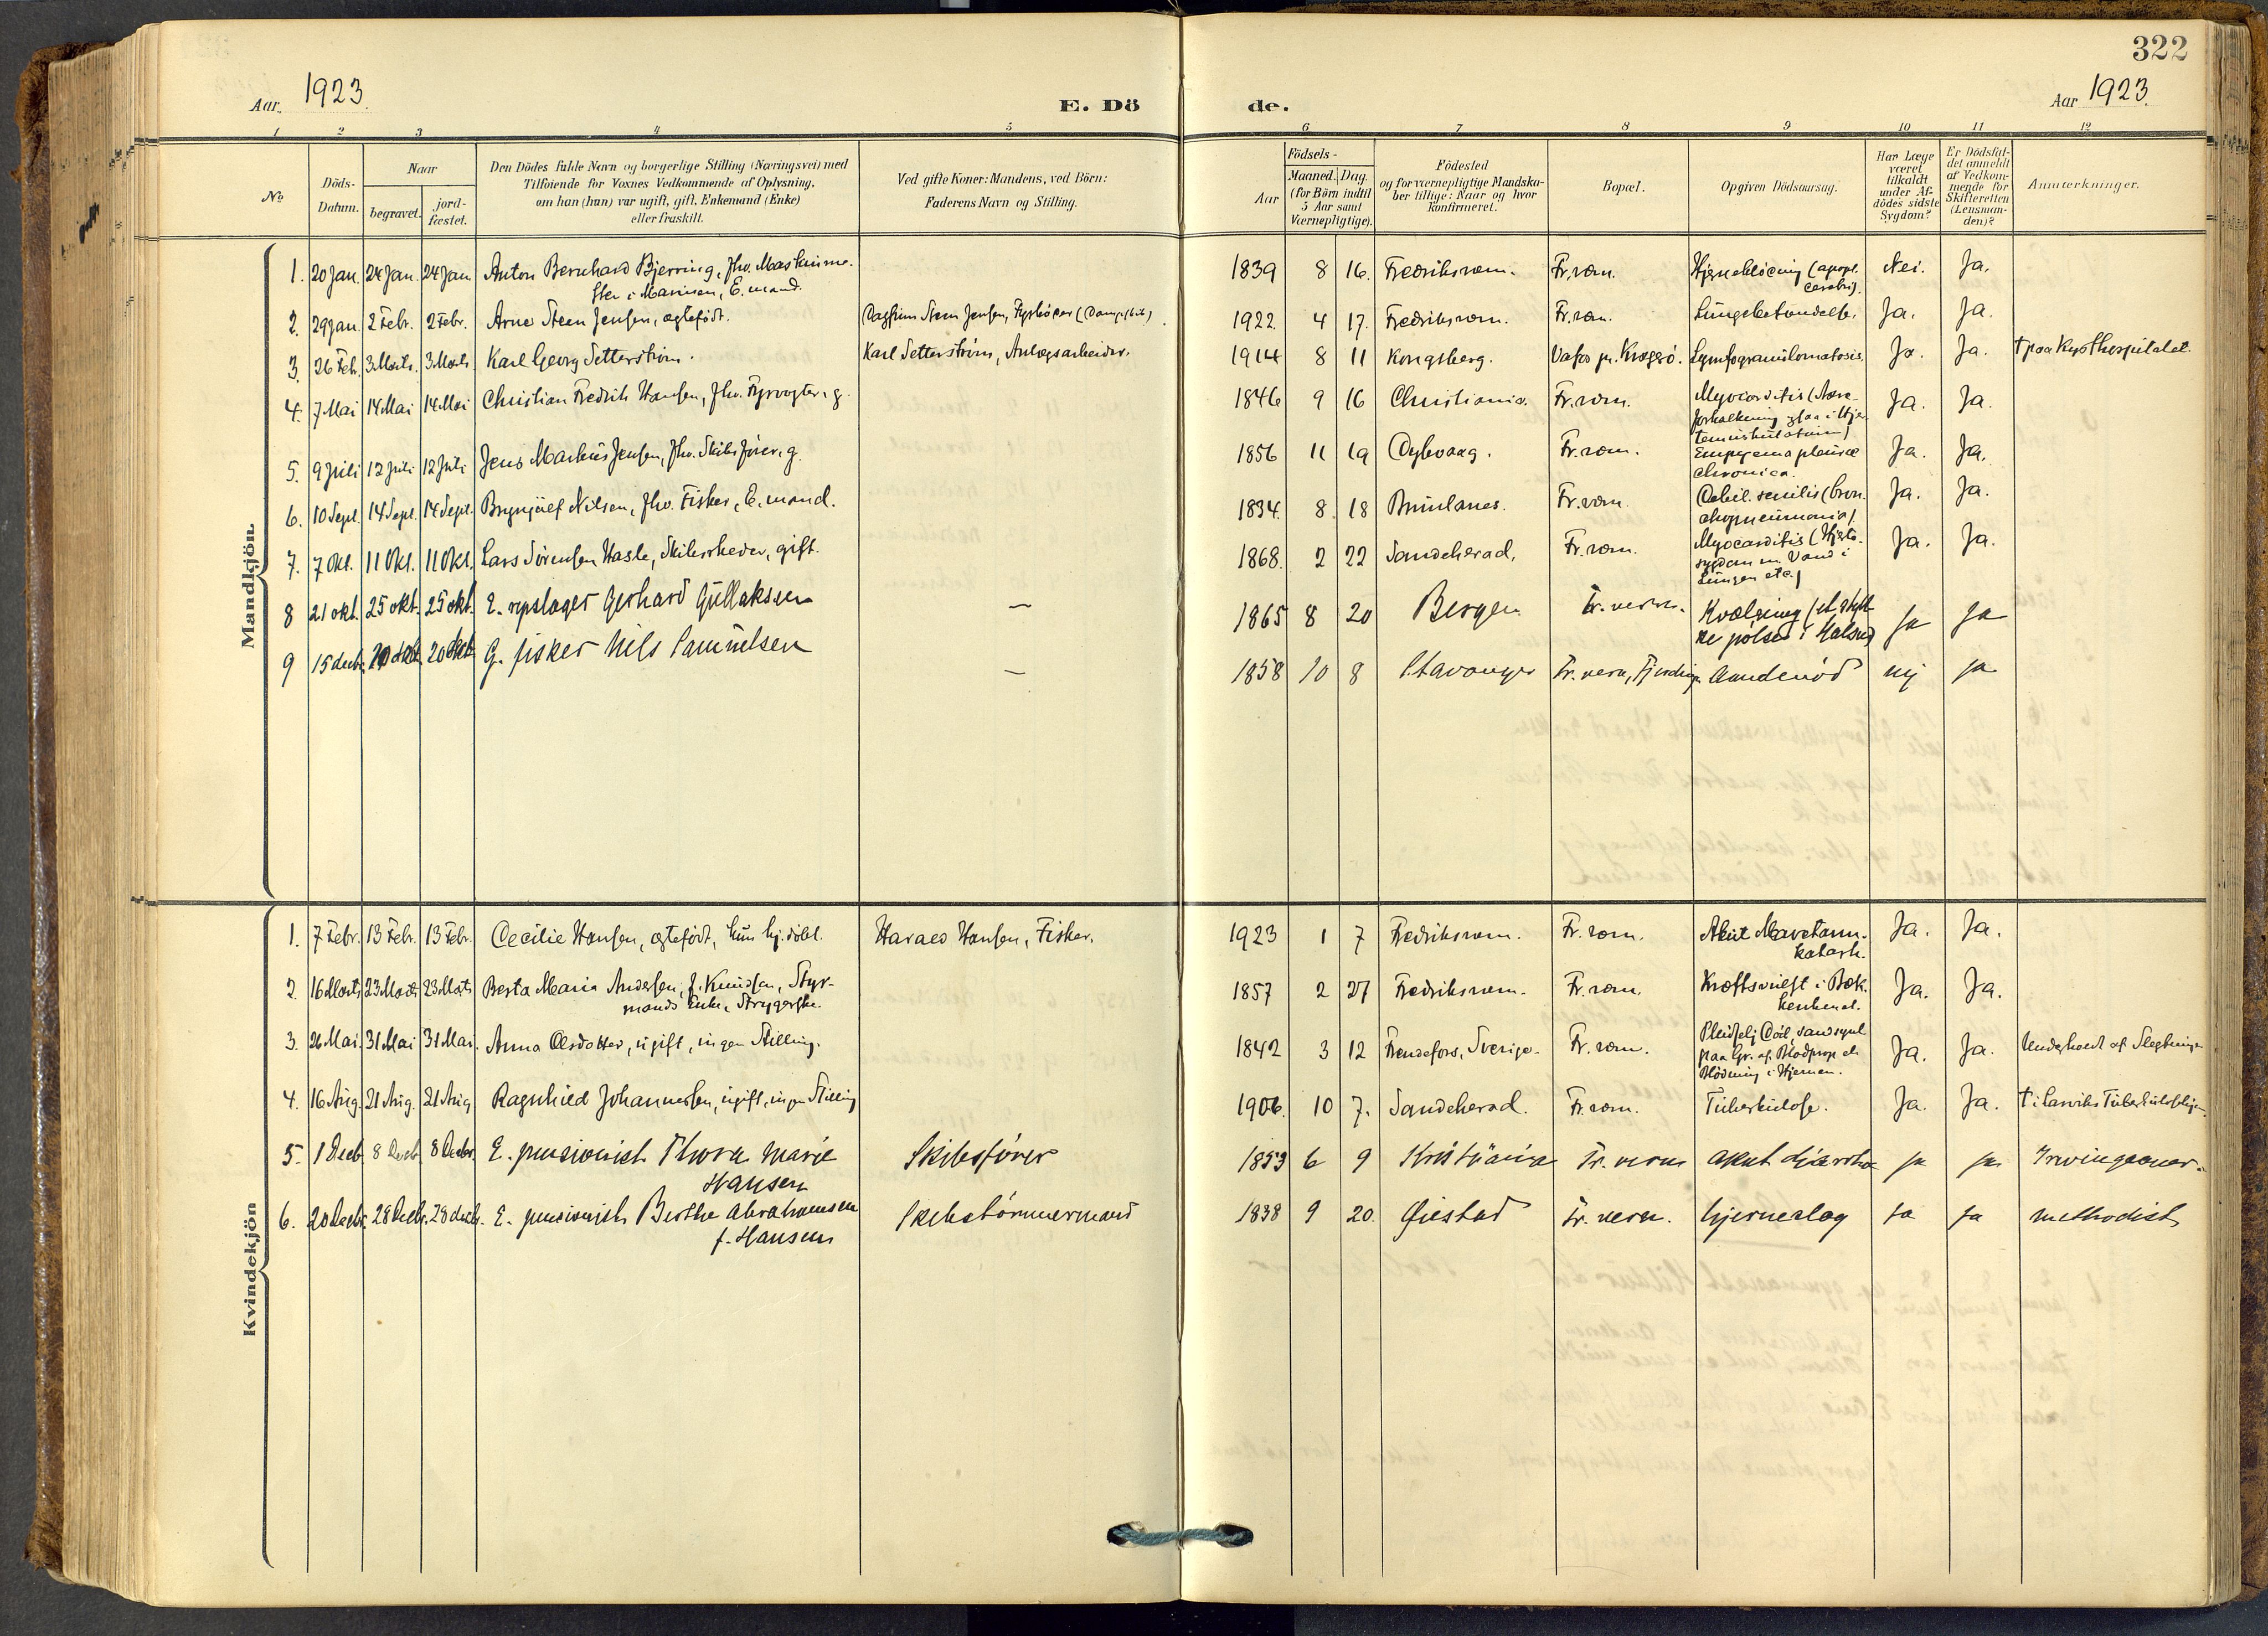 322
Aar. 1923.
E. Dö
de.
Aar 1923.
1 2 3 4 5 6 7 8 9 10 11 12
No
Döds-Datum.
Naar
begravet.
jord-fæstet.
Den Dödes fulde Navn og borgerlige Stilling (Næringsvei) med
Tilföiende for Voxnes Vedkommende af Oplysning,
om han (hun) var ugift, gift, Enkemand (Enke)
eller fraskilt.
Ved gifte Koner: Mandens, ved Börn:
Faderens Navn og Stilling.
Födsels-
Aar
Maaned. Dag.
(for Börn indtil
5 Aar samt
Værnepligtige).
Födested
og for værnepligtige Mandska-
ber tillige: Naar og hvor
konfirmeret.
Bopæl.
Opgiven Dödsaarsag.
Har Læge
været
tilkaldt
under Af-
dödes sidste
Sygdom?
Er Dödsfal-
det anmeldt
af Vedkom-
mende for
Skifteretten
(Lensman-
den)?
Anmærkninger.
Mandkjön.
1. 20 Jan. 24 Jan. 24 Jan Anton Bernhard Bjerring, fhv. Maskinme-
ster i Marinen, E.mand.
1839 8 16. Fredriksværn. Fr.værn. Hjerneblödning (apopl.
cerebri). Nei. Ja.
2. 29 Jan. 2 Febr. 2 Febr. Arne Steen Jensen, ægtefödt. Dagfinn Steen Jensen, Fyrböder (Dampskib) 1922. 4 17. Fredriksværn. Fr.værn. Lungebetændelse. Ja. Ja.
3. 26 Feb. 3 Marts. 3 Marts Karl Georg Setterström. Karl Setterström, Anlægsarbeider. 1914 8 11 Kongsberg. Vafos pr. Kragerö. Lymfogranulomatosis. Ja. Ja. † paa Kysthospitalet.
4. 7 Mai 14 Mai 14 Mai Christian Fredrik Hansen, fhv. Fyrvogter, g. 1846 9 16 Christiania. Fr.værn. Myocarditis (Aare-
forkalkning ogsaa i Hjer-
Ja. Ja.
5. 9 Juli 12 Juli 12 Juli Jens Markus Jensen, fhv. Skibsförer, g. 1856 11 19 Dybvaag. Fr.værn. Empyema pleuræ
chronica. Ja. Ja.
6. 10 Sept. 14 Sept. 14 Sept. Brynjulf Nilsen, fhv. Fisker, E.mand. 1834. 8. 18 Brunlanes. Fr.værn. Debil. senilis (bron-
chopneumonia). Ja. Ja.
7. 7 Okt. 11 Okt. 11 Okt. Lars Sörensen Hasle, Skibsrheder, gift. 1868. 2 22 Sandeherad. Fr.værn. Myocarditis (Hjerte-
sygdom m. Vand i
Lungen etc.) Ja. Ja.
8 21 okt. 25 okt. 25 okt. E. repslager Gerhard Gullaksen — 1865 8 20 Bergen Fr. værn. Kvælning (et stykke
pölse i Halsen) ja ja
9 15 decbr. 20 20 G. fisker Nils Samuelsen — 1858 10 8 Stavanger Fr. værn, Aandenöd nej ja
Kvindekjön
1. 7 Febr. 13 Febr. 13 Febr. Cecilie Hansen, ægtefödt, kun hj.döbt. Harald Hansen, Fisker. 1923 1 7 Fredriksværn. Fr.værn. Akut Mavetarm-
katarh. Ja. Ja.
2. 16 Marts 23 Marts 23 Marts Berta Maria Andersen, f. Knudsen, Styr-
mands Enke, Strygerske. 1857 2 27 Fredriksværn. Fr.værn. Kræftsvulst i Bæk-
kenbenet. Ja. Ja.
3. 26 Mai. 31 Mai 31 Mai. Anna Olsdatter, ugift, ingen Stilling. 1842 3 12 Frendefors, Sverige. Fr.værn. Pludselig Död, sandsynl.
paa Gr. af Blodprop el.
Blödning i Hjernen. Ja. Ja. Underholdt af Slegtninge.
4. 16 Aug. 21 Aug. 21 Aug Ragnhild Johannesen, ugift, ingen Stilling 1906. 10 7. Sandeherad. Fr.værn. Tuberkulose. Ja. Ja. † i Larviks Tuberkulosehjem.
5. 1 Decb 8 Decb 8 Decbr. E. pensionist Thora Marie
Hansen Skibsförer 1853 6 9 Kristiania Fr. værn akut diarrhe ja ja Irvingianer.
6. 20 Decbr. 28 Decbr. 28 decbr. E. pensionist Berthe Abrahamsen
f. Hansen Skibstömmermand 1838 9 20. Öiestad Fr. værn. hjerneslag ja ja methodist